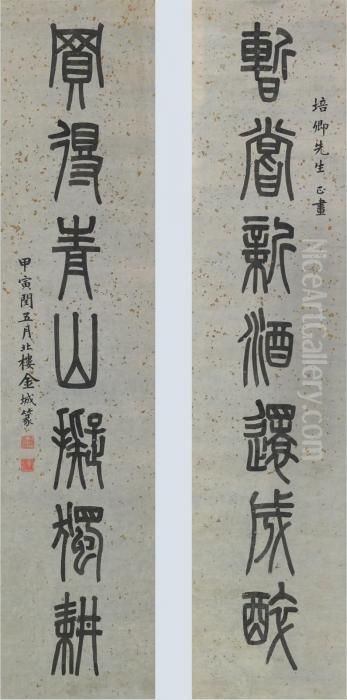 培卿先生正畫
暫嘗新酒還成醉
買得青山擬獨耕
甲寅閏五月北樓金城篆
NiceArtGallery.com